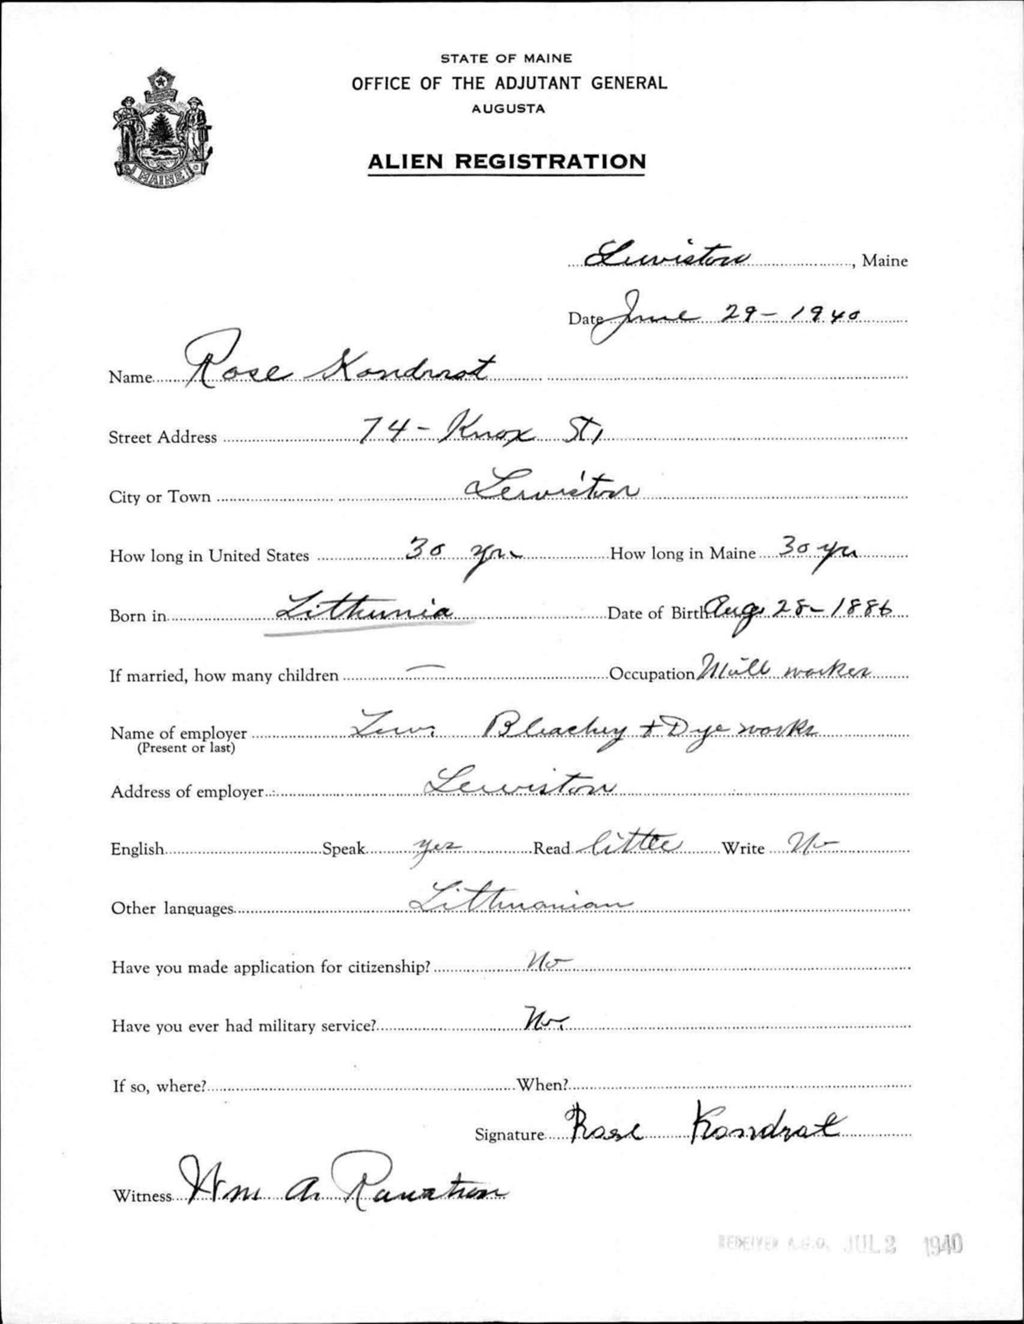 STATE OF MAINE
OFFICE OF THE ADJUTANT GENERAL
AUGUSTA
ALIEN REGISTRATION
MAINE
Lewiston, Maine
Date June 29-1940
Name Rose Kondrat
Street Address 74-Knox St,
City or Town Lewiston
How long in United States 30 yrs How long in Maine 30 yrs
Born in Lithunia Date of Birth Aug 28-1886
If married, how many children — Occupation Mill worker
Name of employer Lew. Bleachey + Dye works
(Present or last)
Address of employer Lewiston
English Speak yes Read little Write No
Other languages Lithuanian
Have you made application for citizenship? No
Have you ever had military service? No.
If so, where? When?
Signature Rose Kondrat
Witness Wm A.
RECEIVED A.G.O. JUL 2 1940